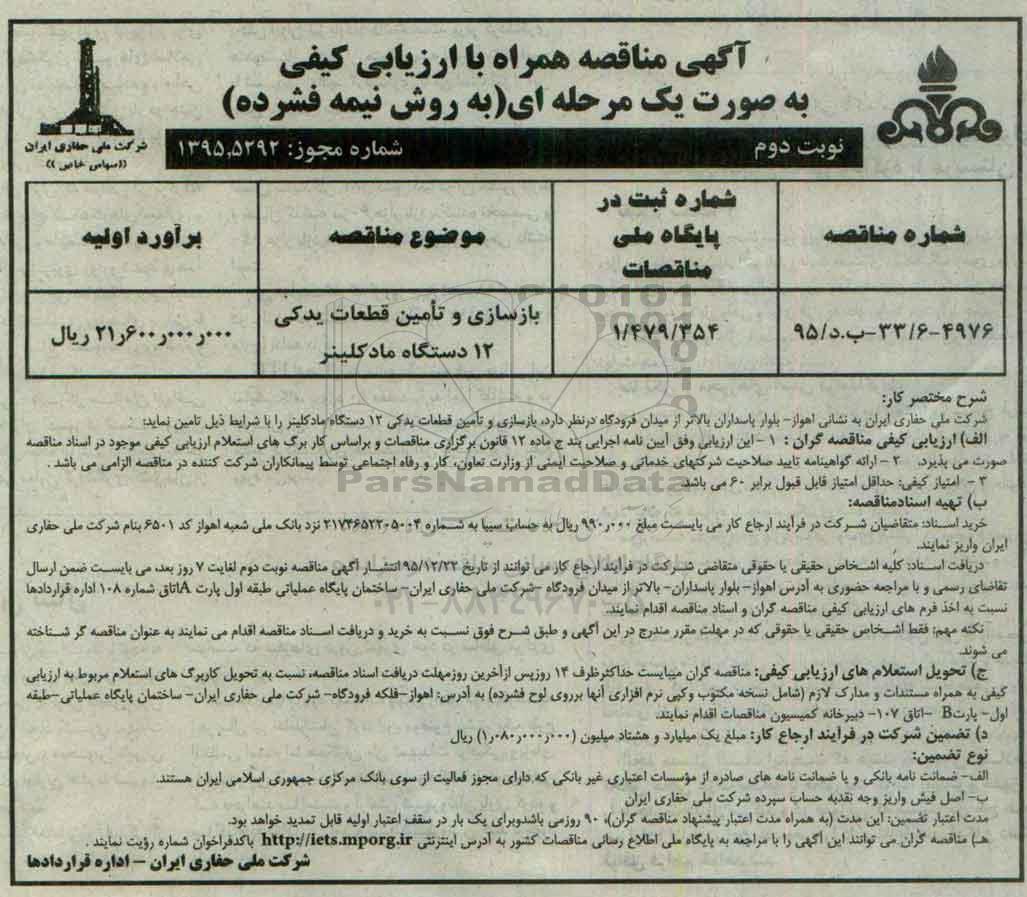 آگهی مناقصه همراه با ارزیابی کیفی
به صورت یک مرحله ای(به روش نیمه فشرده)
شرکت ملی حفاری ایران
((سهامی خاص))
نوبت دوم
شماره مجوز: ۱۳۹۵,۵۲۹۲
شماره مناقصه
شماره ثبت در پایگاه ملی مناقصات
موضوع مناقصه
برآورد اولیه
۴۹۷۶-۳۳/۶-ب.د/۹۵
۱/۴۷۹/۳۵۴
بازسازی و تأمین قطعات یدکی
۱۲ دستگاه مادکلینر
۲۱٫۶۰۰٫۰۰۰٫۰۰۰ ریال
شرح مختصر کار:
شرکت ملی حفاری ایران به نشانی اهواز- بلوار پاسداران بالاتر از میدان فرودگاه درنظر دارد، بازسازی و تأمین قطعات یدکی ۱۲ دستگاه مادکلینر را با شرایط ذیل تامین نماید:
الف) ارزیابی کیفی مناقصه گران : ۱ - این ارزیابی وفق آیین نامه اجرایی بند ج ماده ۱۲ قانون برگزاری مناقصات و براساس کار برگ های استعلام ارزیابی کیفی موجود در اسناد مناقصه
صورت می پذیرد. ۲ - ارائه گواهینامه تایید صلاحیت شرکتهای خدماتی و صلاحیت ایمنی از وزارت تعاون، کار و رفاه اجتماعی توسط پیمانکاران شرکت کننده در مناقصه الزامی می باشد .
۳ - امتیاز کیفی: حداقل امتیاز قابل قبول برابر ۶۰ می باشد.
ب) تهیه اسنادمناقصه:
خرید اسناد: متقاضیان شرکت در فرآیند ارجاع کار می بایست مبلغ ۹۹۰٫۰۰۰ ریال به حساب سیبا به شماره ۲۱۷۴۶۵۲۲۰۵۰۰۴ نزد بانک ملی شعبه اهواز کد ۶۵۰۱ بنام شرکت ملی حفاری
ایران واریز نمایند.
دریافت اسناد: کلیه اشخاص حقیقی یا حقوقی متقاضی شرکت در فرآیند ارجاع کار می توانند از تاریخ ۹۵/۱۲/۲۲ انتشار آگهی مناقصه نوبت دوم لغایت ۷ روز بعد، می بایست ضمن ارسال
تقاضای رسمی و با مراجعه حضوری به آدرس اهواز- بلوار پاسداران- بالاتر از میدان فرودگاه -شرکت ملی حفاری ایران- ساختمان پایگاه عملیاتی طبقه اول پارت Aاتاق شماره ۱۰۸ اداره قراردادها
نسبت به اخذ فرم های ارزیابی کیفی مناقصه گران و اسناد مناقصه اقدام نمایند.
نکته مهم: فقط اشخاص حقیقی یا حقوقی که در مهلت مقرر مندرج در این آگهی و طبق شرح فوق نسبت به خرید و دریافت اسناد مناقصه اقدام می نمایند به عنوان مناقصه گر شناخته
می شوند.
ج) تحویل استعلام های ارزیابی کیفی: مناقصه گران میبایست حداکثرظرف ۱۴ روزپس ازآخرین روزمهلت دریافت اسناد مناقصه، نسبت به تحویل کاربرگ های استعلام مربوط به ارزیابی
کیفی به همراه مستندات و مدارک لازم (شامل نسخه مکتوب وکپی نرم افزاری آنها برروی لوح فشرده) به آدرس: اهواز-فلکه فرودگاه- شرکت ملی حفاری ایران- ساختمان پایگاه عملیاتی-طبقه
اول- پارتB -اتاق ۱۰۷- دبیرخانه کمیسیون مناقصات اقدام نمایند.
د) تضمین شرکت در فرآیند ارجاع کار: مبلغ یک میلیارد و هشتاد میلیون (۱٫۰۸۰٫۰۰۰٫۰۰۰) ریال
نوع تضمین:
الف- ضمانت نامه بانکی و یا ضمانت نامه های صادره از مؤسسات اعتباری غیر بانکی که دارای مجوز فعالیت از سوی بانک مرکزی جمهوری اسلامی ایران هستند.
ب- اصل فیش واریز وجه نقدبه حساب سپرده شرکت ملی حفاری ایران
مدت اعتبار تضمین: این مدت (به همراه مدت اعتبار پیشنهاد مناقصه گران)، ۹۰ روزمی باشدوبرای یک بار در سقف اعتبار اولیه قابل تمدید خواهد بود.
هـ) مناقصه گران می توانند این آگهی را با مراجعه به پایگاه ملی اطلاع رسانی مناقصات کشور به آدرس اینترنتی http://iets.mporg.ir باکدفراخوان شماره رؤیت نمایند .
شرکت ملی حفاری ایران - اداره قراردادها
ParsNamadData